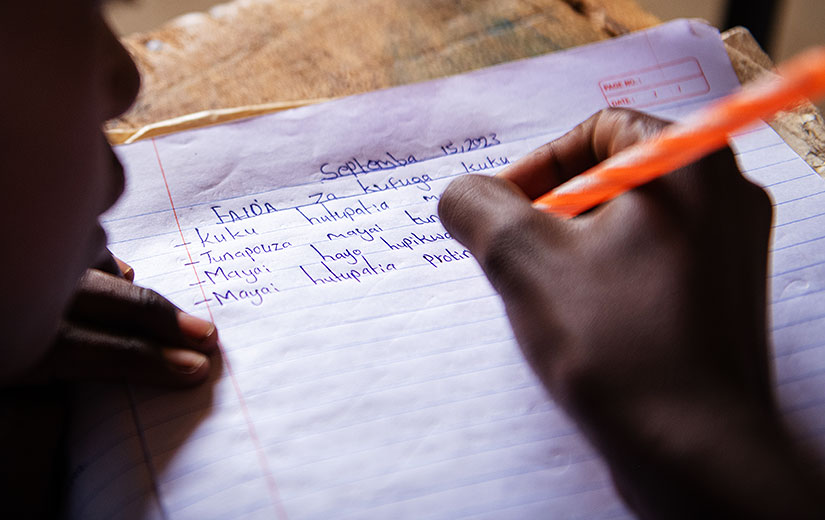 PAGE NO.:
DATE: / /
Septemba 15, 2023
FAIDA ZA kufuga kuku
- kuku hulupatia kuku
- Tunapouza mayai
- Mayai hayo hupikwa
- Mayai hulupatia protin